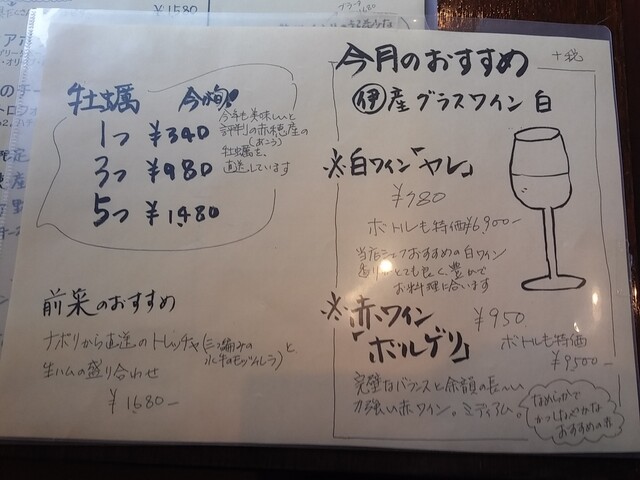 牡蠣 今が旬!
1つ ¥390
3つ ¥980
5つ ¥1480
今年も美味しいと
評判の赤穂産の
(あこう)
牡蠣を
直送しています
前菜のおすすめ
ナポリから直送のトレッチャ(三つ編みの
水牛のモッツァレラ)と
生ハムの盛り合わせ
¥1680-
今月のおすすめ
+税
伊産グラスワイン 白
※白ワイン「ヤレ」
¥980
ボトルも特価¥6,900-
当店シェフおすすめの白ワイン
香りがとても良く豊かで
お料理に合います
※赤ワイン
¥950
「ボルゲリ」
ボトルも特価
¥9500-
完璧なバランスと余韻の長い
力強い赤ワイン。ミディアム。
なめらかで
おすすめの赤
¥1580